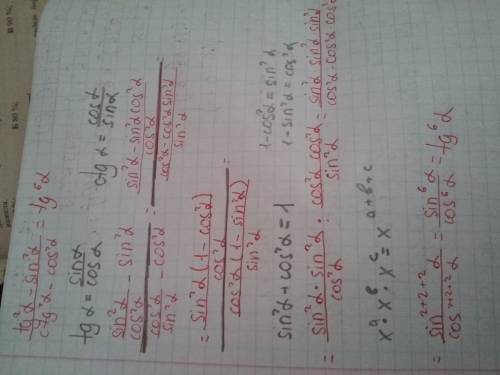 tg²α - sin²α / ctg²α - cos²α = tg⁶α
tgα = sinα / cosα   ctgα = cosα / sinα
(sin²α / cos²α - sin²α) / (cos²α / sin²α - cos²α) = ((sin²α - sin²α cos²α) / cos²α) / ((cos²α - cos²α sin²α) / sin²α) =
= (sin²α (1 - cos²α) / cos²α) / (cos²α (1 - sin²α) / sin²α) =
sin²α + cos²α = 1   1 - cos²α = sin²α
1 - sin²α = cos²α
= (sin²α · sin²α / cos²α) : (cos²α cos²α / sin²α) = sin²α sin²α sin²α / cos²α · cos²α cos²α
xᵃ · xᵇ · xᶜ = xᵃ⁺ᵇ⁺ᶜ
= sin²⁺²⁺²α / cos²⁺²⁺²α = sin⁶α / cos⁶α = tg⁶α